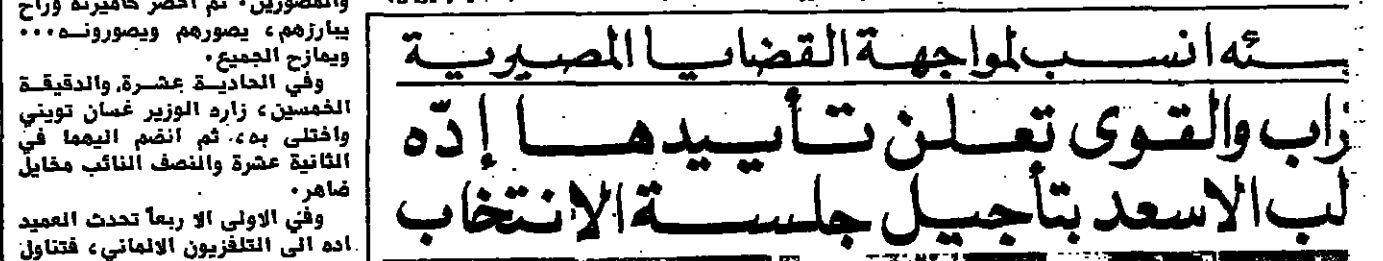 ـئه انسب لمواجهة القضايا المصيرية
زاب والقوى تعلن تأييدها إدّه
لب الاسعد بتأجيل جلسة الانتخاب
والمصورين. ثم احضر كاميرته وراح
يبارزهم، يصورهم ويصورونه...
ويمازح الجميع.
وفي الحادية عشرة والدقيقة
الخمسين، زاره الوزير غسان تويني
واختلى به، ثم انضم اليهما في
الثانية عشرة والنصف النائب مخايل
ضاهر.
وفي الاولى الا ربعاً تحدث العميد
اده الى التلفزيون الالماني، فتناول